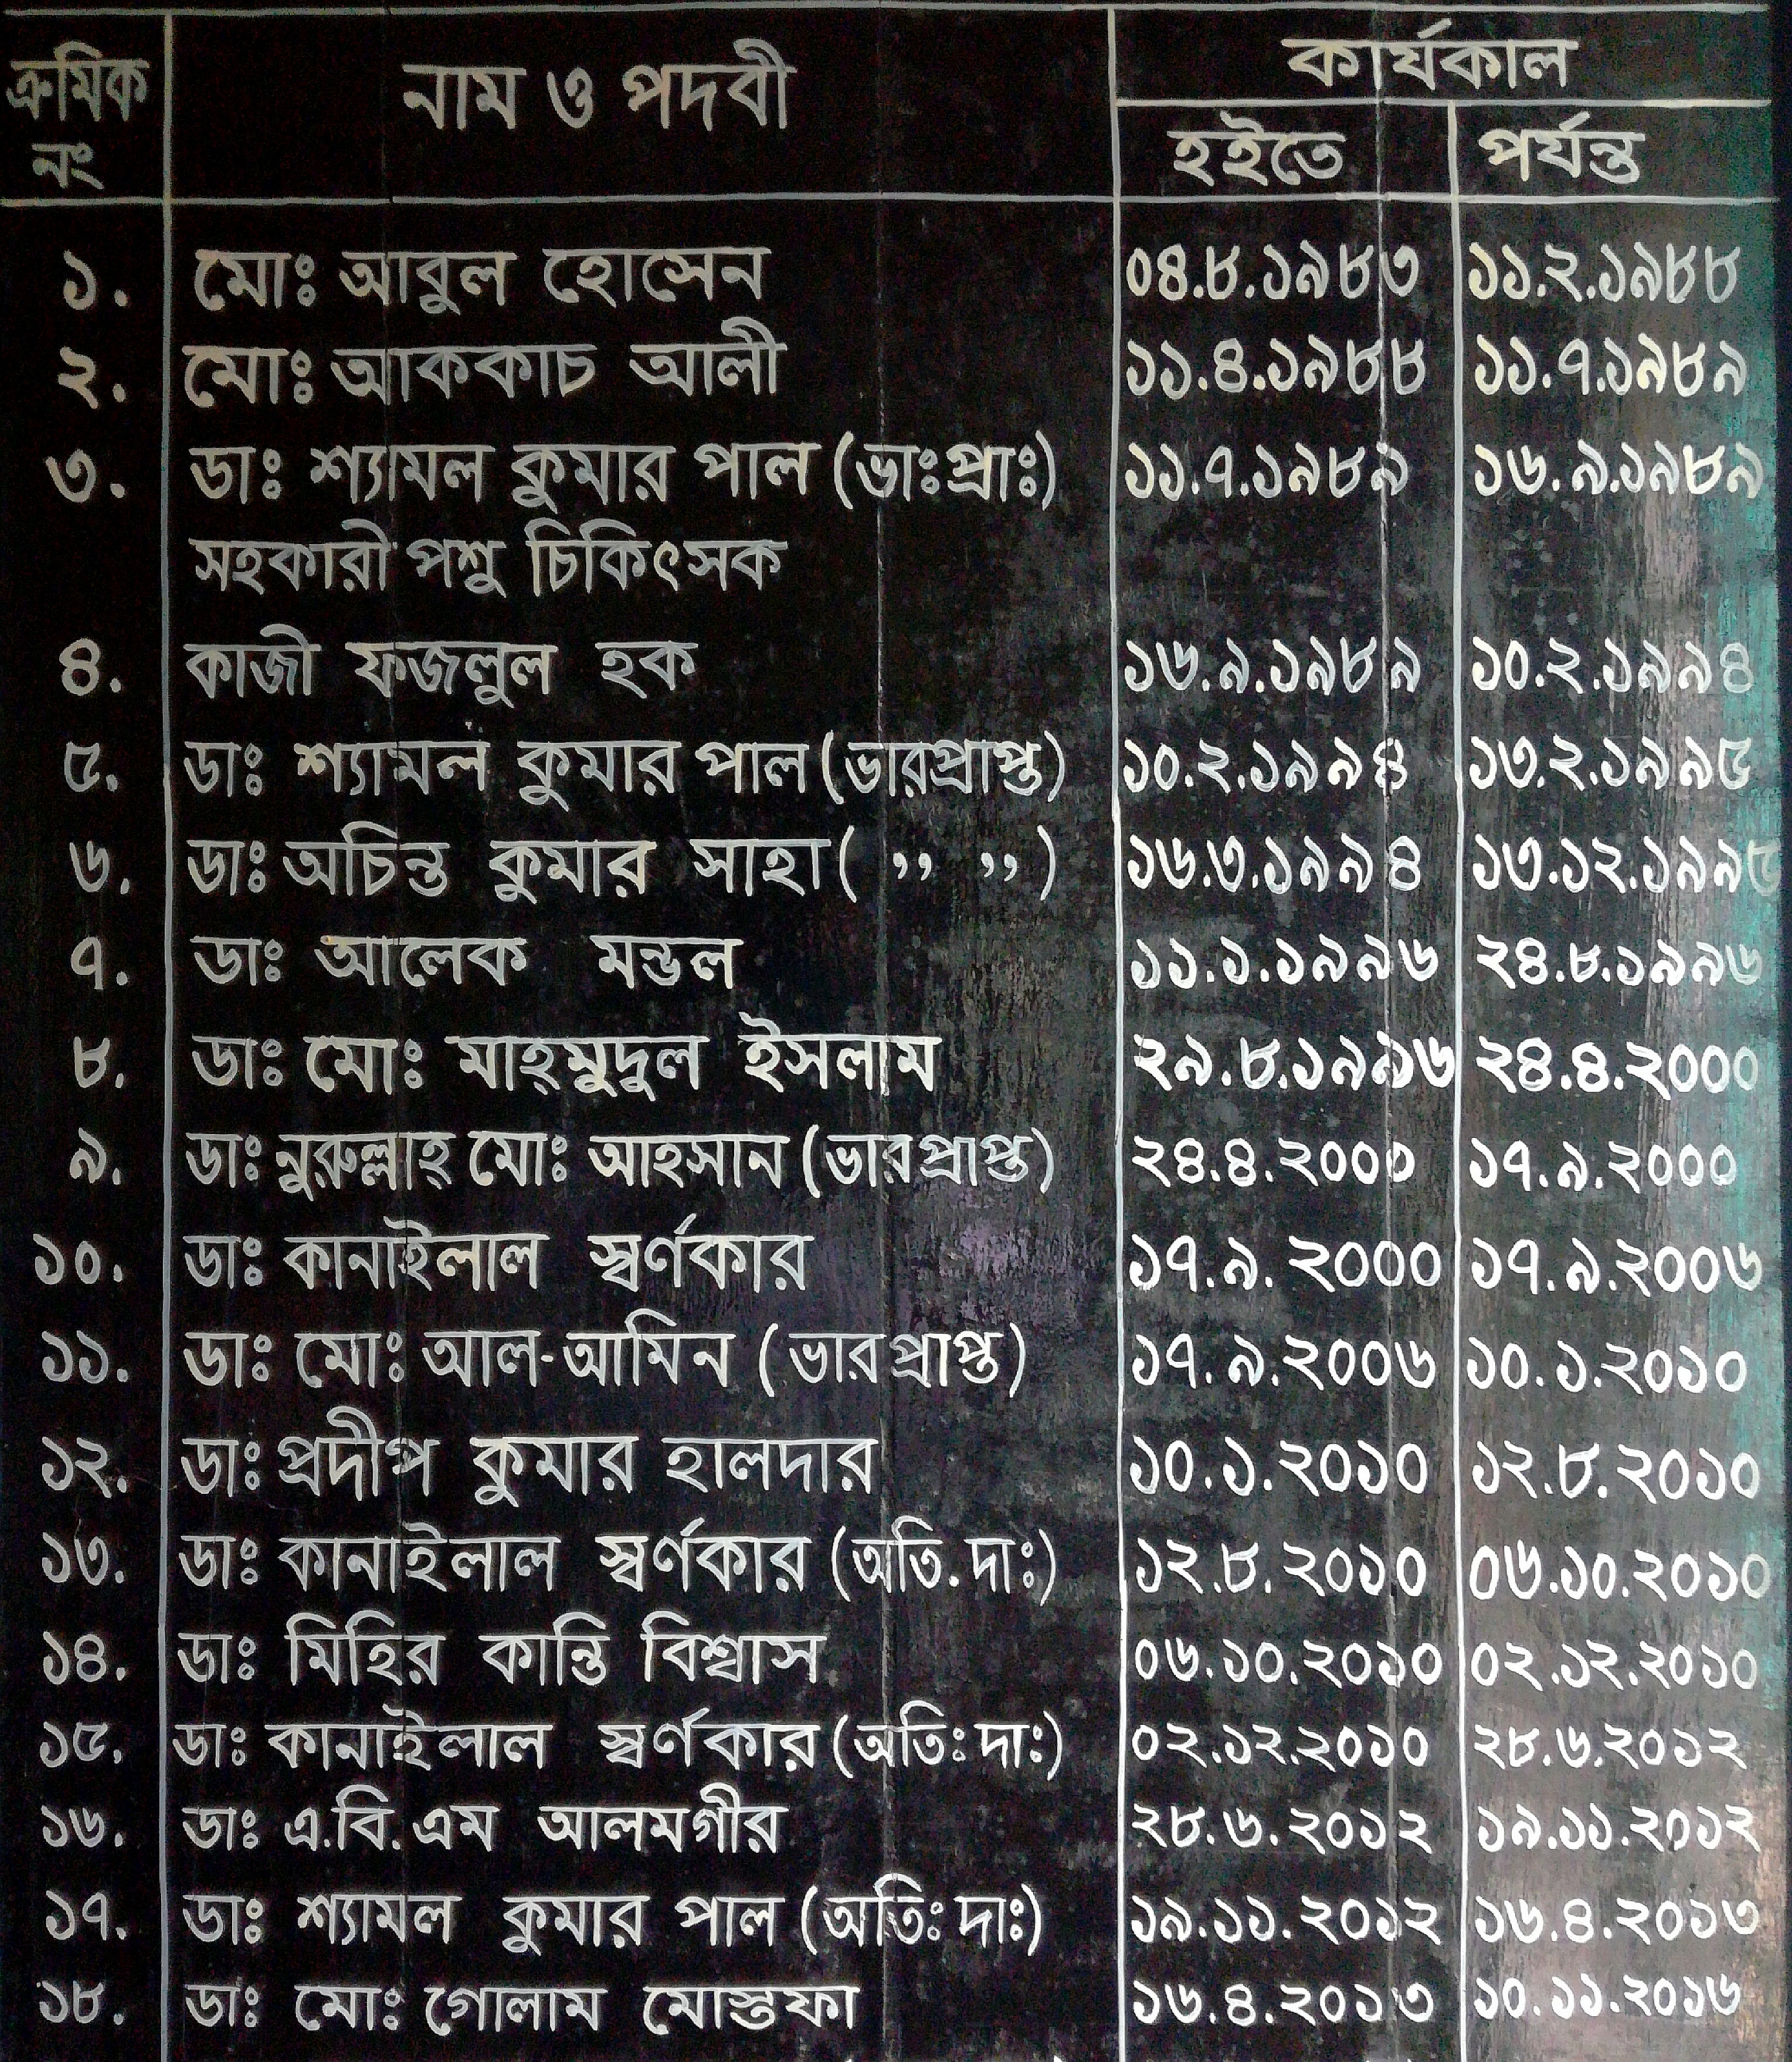 ক্রমিক নং নাম ও পদবী কার্যকাল
হইতে পর্যন্ত
১. মোঃ আবুল হোসেন ০৪.৮.১৯৮৩ ১১.২.১৯৮৮
২. মোঃ আককাচ আলী ১১.৪.১৯৮৮ ১১.৭.১৯৮৯
৩. ডাঃ শ্যামল কুমার পাল (ভাঃপ্রাঃ) ১১.৭.১৯৮৯ ১৬.৯.১৯৮৯
সহকারী পশু চিকিৎসক
৪. কাজী ফজলুল হক ১৬.৯.১৯৮৯ ১০.২.১৯৯৪
৫. ডাঃ শ্যামল কুমার পাল (ভারপ্রাপ্ত) ১০.২.১৯৯৪ ১৩.২.১৯৯৫
৬. ডাঃ অচিন্ত কুমার সাহা ( ,, ,, ) ১৬.৩.১৯৯৪ ১৩.১২.১৯৯৫
৭. ডাঃ আলেক মন্ডল ১১.১.১৯৯৬ ২৪.৮.১৯৯৬
৮. ডাঃ মোঃ মাহ্মুদুল ইসলাম ২৯.৮.১৯৯৬ ২৪.৪.২০০০
৯. ডাঃ নুরুল্লাহ্ মোঃ আহসান (ভারপ্রাপ্ত) ২৪.৪.২০০০ ১৭.৯.২০০০
১০. ডাঃ কানাইলাল স্বর্ণকার ১৭.৯.২০০০ ১৭.৯.২০০৬
১১. ডাঃ মোঃ আল-আমিন (ভারপ্রাপ্ত) ১৭.৯.২০০৬ ১০.১.২০১০
১২. ডাঃ প্রদীপ কুমার হালদার ১০.১.২০১০ ১২.৮.২০১০
১৩. ডাঃ কানাইলাল স্বর্ণকার (অতি.দাঃ) ১২.৮.২০১০ ০৬.১০.২০১০
১৪. ডাঃ মিহির কান্তি বিশ্বাস ০৬.১০.২০১০ ০২.১২.২০১০
১৫. ডাঃ কানাইলাল স্বর্ণকার (অতিঃ দাঃ) ০২.১২.২০১০ ২৮.৬.২০১২
১৬. ডাঃ এ.বি.এম আলমগীর ২৮.৬.২০১২ ১৯.১১.২০১২
১৭. ডাঃ শ্যামল কুমার পাল (অতিঃ দাঃ) ১৯.১১.২০১২ ১৬.৪.২০১৩
১৮. ডাঃ মোঃ গোলাম মোস্তফা ১৬.৪.২০১৩ ১০.১১.২০১৬